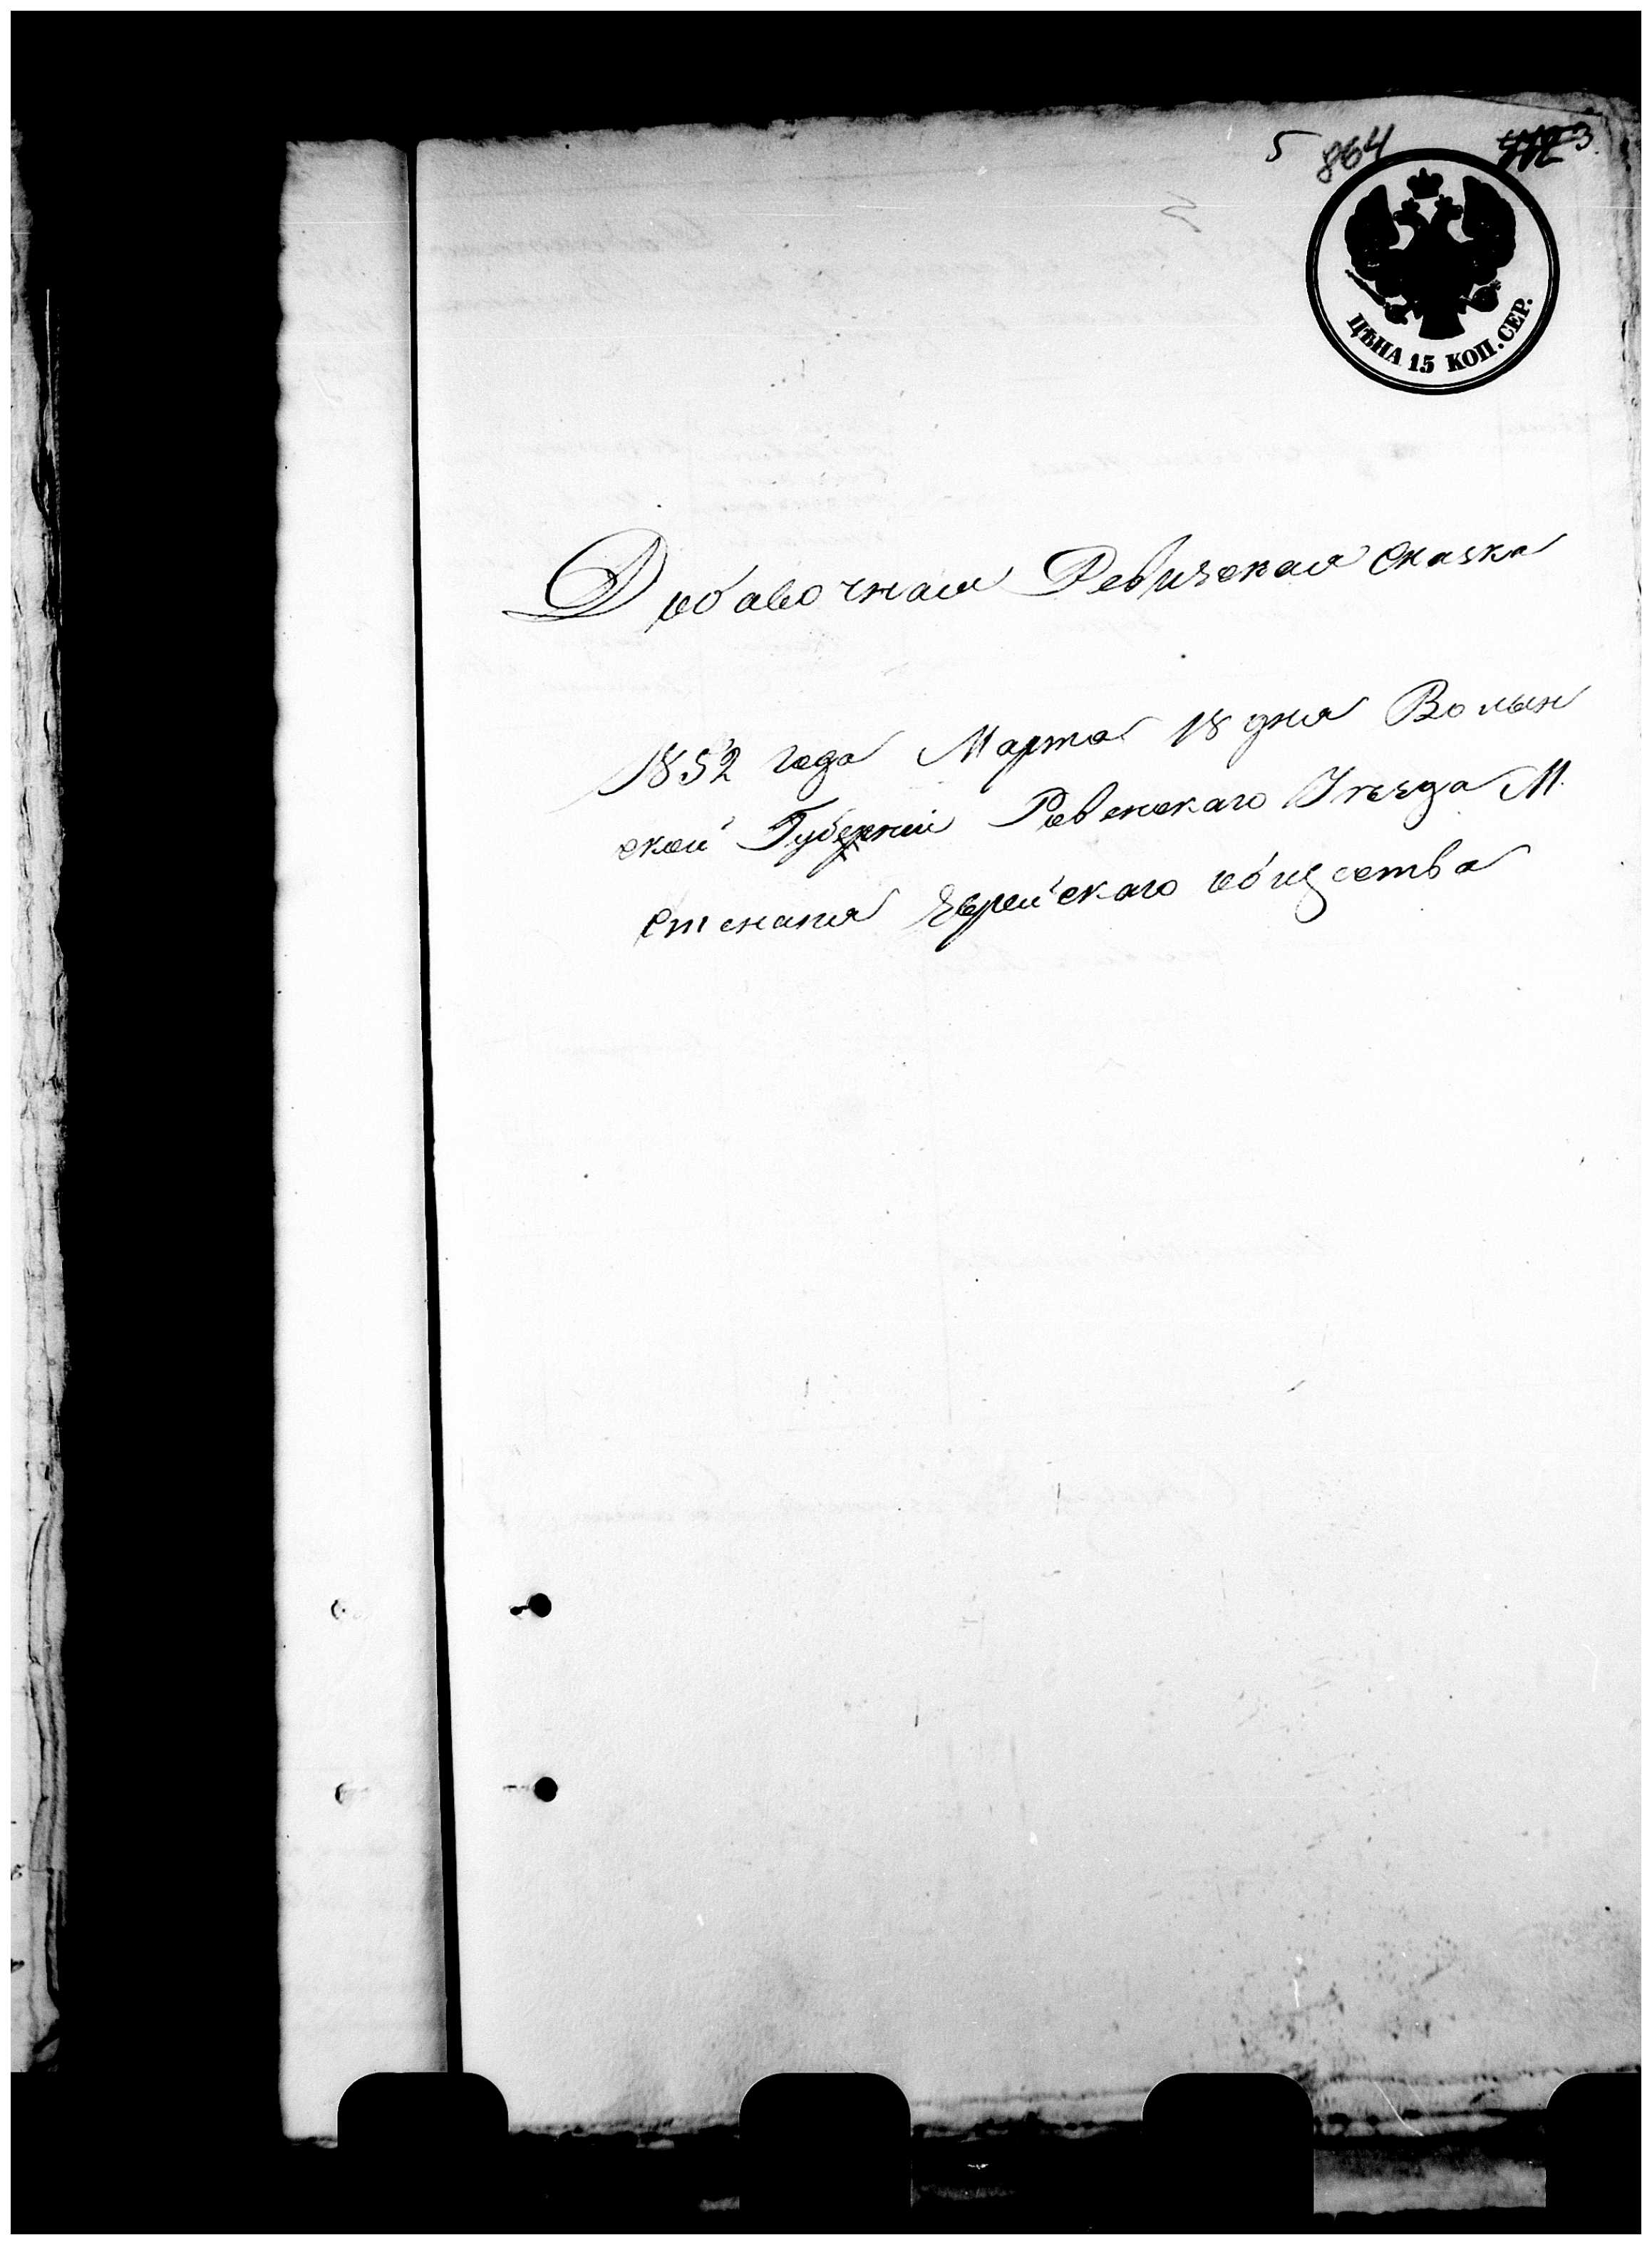 5 864 3
ЦѢНА 15 КОП. СЕР.
Добавочная Ревизская сказка
1852 года Марта 18 дня Волын
ской Губерніи Ровенскаго Уезда М.
Степаня Еврейскаго общества